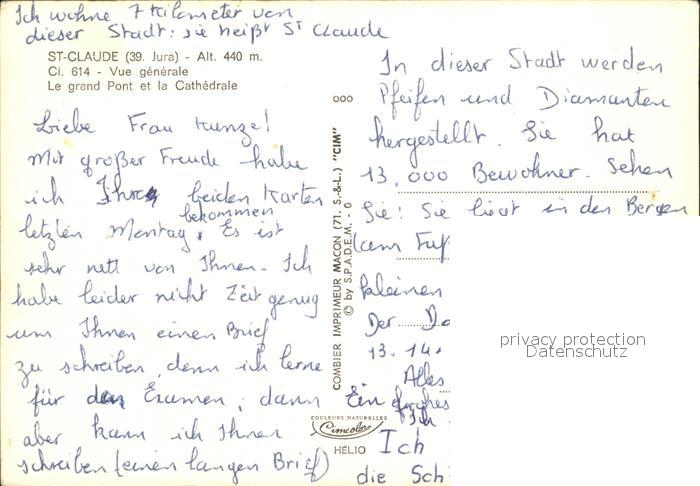 Ich wohne 7 Kilometer von
dieser Stadt: sie heißt St Claude
ST-CLAUDE (39. Jura) - Alt. 440 m.
Ci. 614 - Vue générale
Le grand Pont et la Cathédrale
Liebe Frau Kunze!
Mit großer Freude habe
ich Ihre beiden Karten
bekommen
letzten Montag. Es ist
sehr nett von Ihnen. Ich
habe leider nicht Zeit genug
um Ihnen einen Brief
zu schreiben, denn ich lerne
für den Examen; dann
aber kann ich Ihnen
schreiben (einen langen Brief)
COMBIER IMPRIMEUR MACON (71. S.-&-L.) "CIM"
© by S.P.A.D.E.M. - 0
COULEURS NATURELLES
Cimcolor
HÉLIO
In dieser Stadt werden
Pfeifen und Diamanten
hergestellt. Sie hat
13.000 Bewohner. Sehen
Sie: Sie liegt in den Bergen
(am Fuß
kleinen
Der
13. 14.
Alles
Ein
Ich
die Sch
privacy protection
Datenschutz